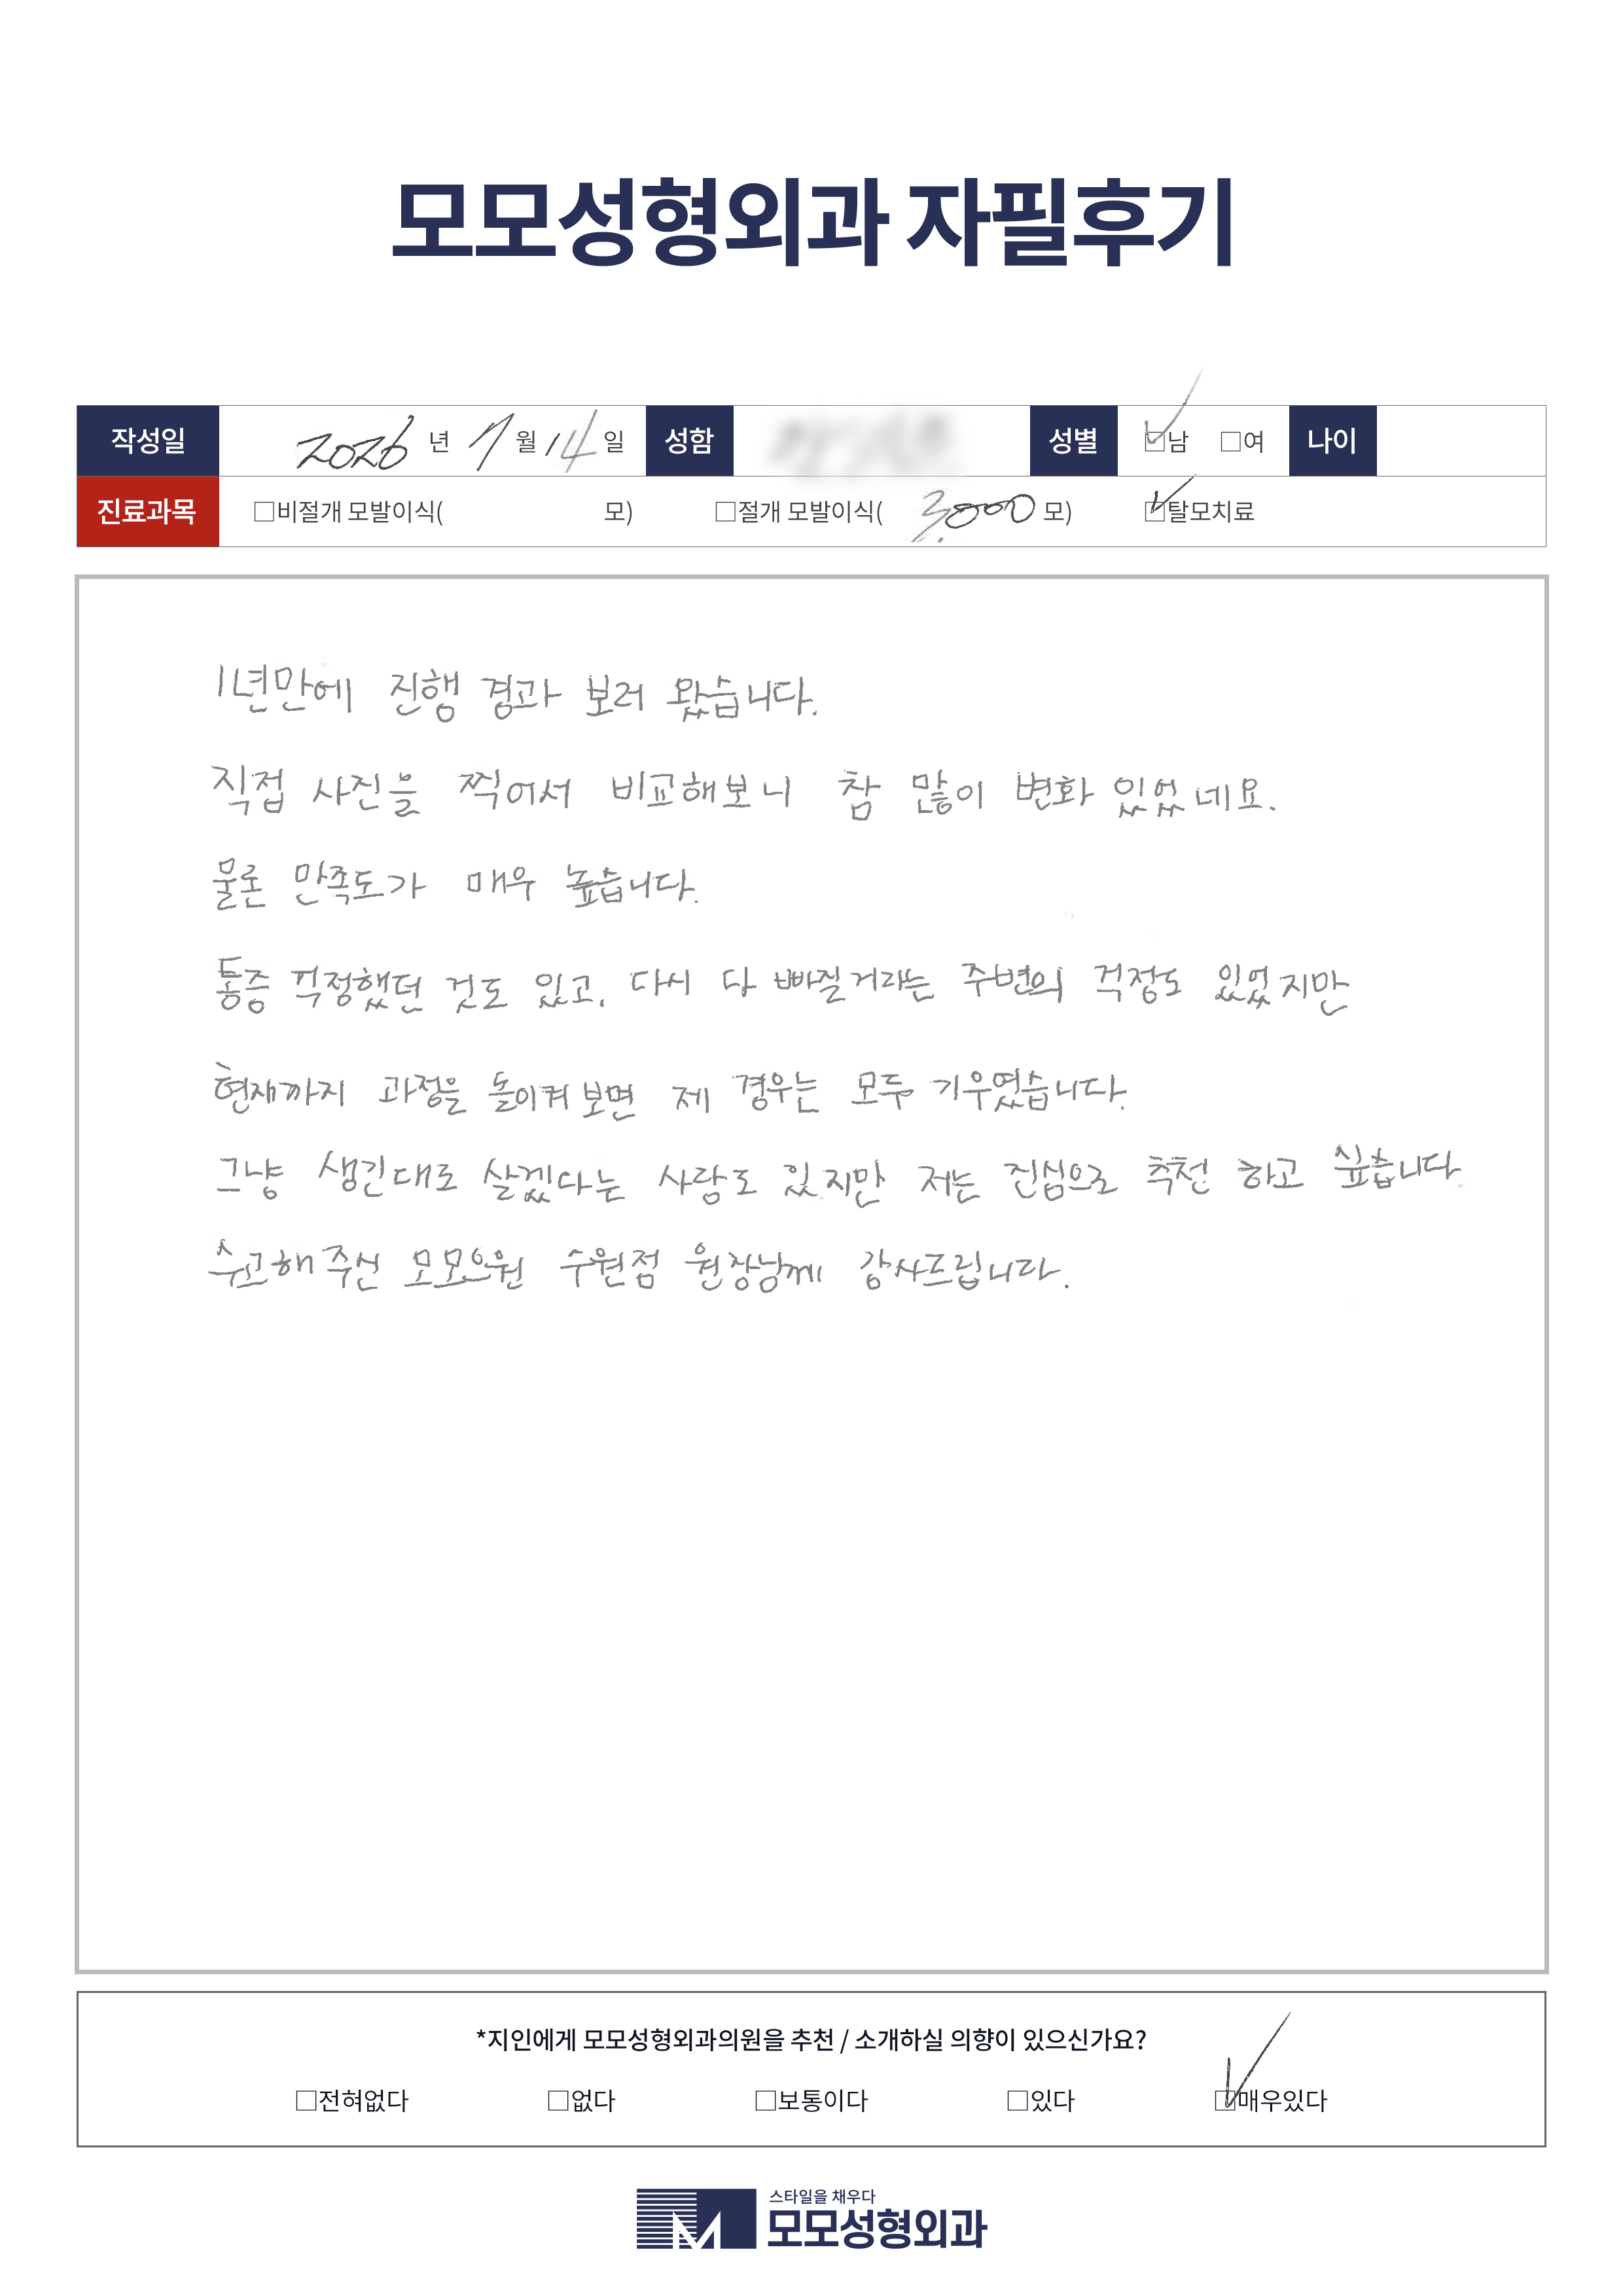 모모성형외과 자필후기
작성일 2026 년 7 월 14 일 성함 성별 □남 □여 나이
진료과목 □비절개 모발이식( 모) □절개 모발이식( 3,000 모) □탈모치료
1년만에 진행 경과 보러 왔습니다.
직접 사진을 찍어서 비교해보니 참 많이 변화 있었네요.
물론 만족도가 매우 높습니다.
통증 걱정했던 것도 있고, 다시 다 빠질거라는 주변의 걱정도 있었지만
현재까지 과정을 돌이켜 보면 제 경우는 모두 기우였습니다.
그냥 생긴대로 살겠다는 사람도 있지만 저는 진심으로 추천 하고 싶습니다.
수고해 주신 모모의원 수원점 원장님께 감사드립니다.
*지인에게 모모성형외과의원을 추천 / 소개하실 의향이 있으신가요?
□전혀없다 □없다 □보통이다 □있다 □매우있다
스타일을 채우다
모모성형외과